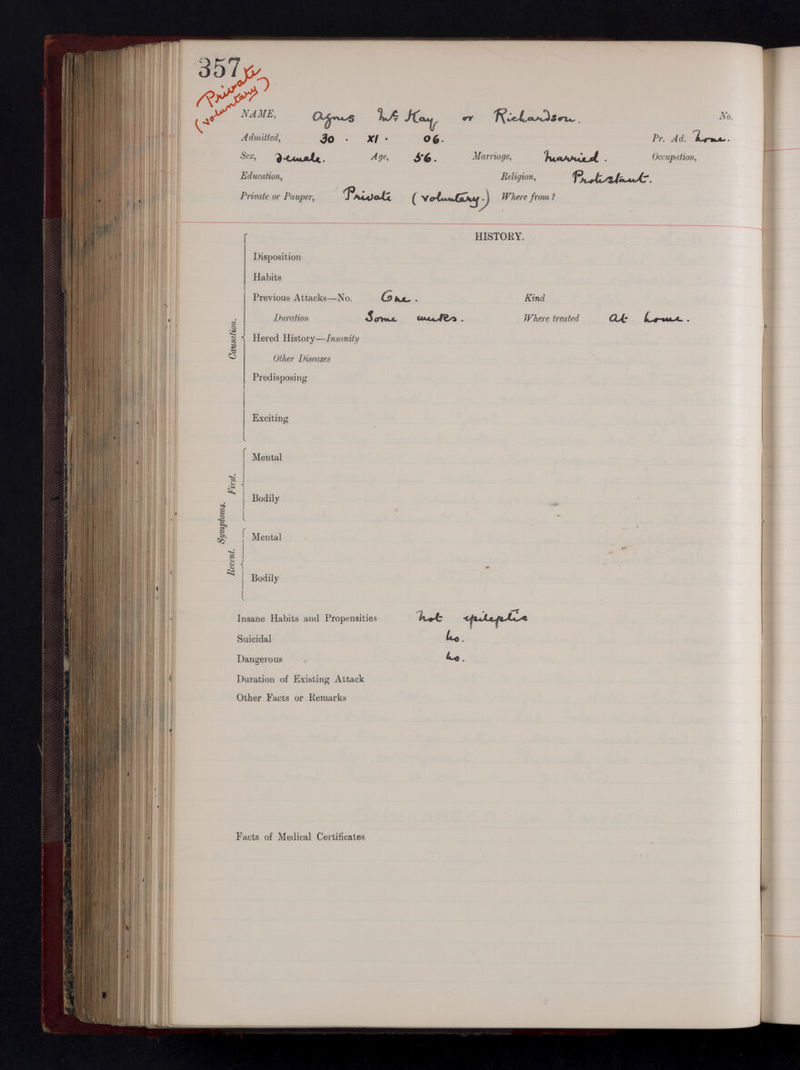 357
Private
(voluntary)
NAME, Agnes McKay or Richardson. No.
Admitted, 30 . XI . 06. Pr. Ad. None.
Sex, Female. Age, 56. Marriage, Married. Occupation,
Education, Religion, Protestant.
Private or Pauper, Private (voluntary.) Where from?
HISTORY.
Causation.
Disposition
Habits
Previous Attacks—No. One. Kind
Duration Some weeks. Where treated At home.
Hered History—Insanity
Other Diseases
Predisposing
Exciting
Symptoms.
First.
Mental
Bodily
Recent.
Mental
Bodily
Insane Habits and Propensities Not epileptic
Suicidal No.
Dangerous No.
Duration of Existing Attack
Other Facts or Remarks
Facts of Medical Certificates